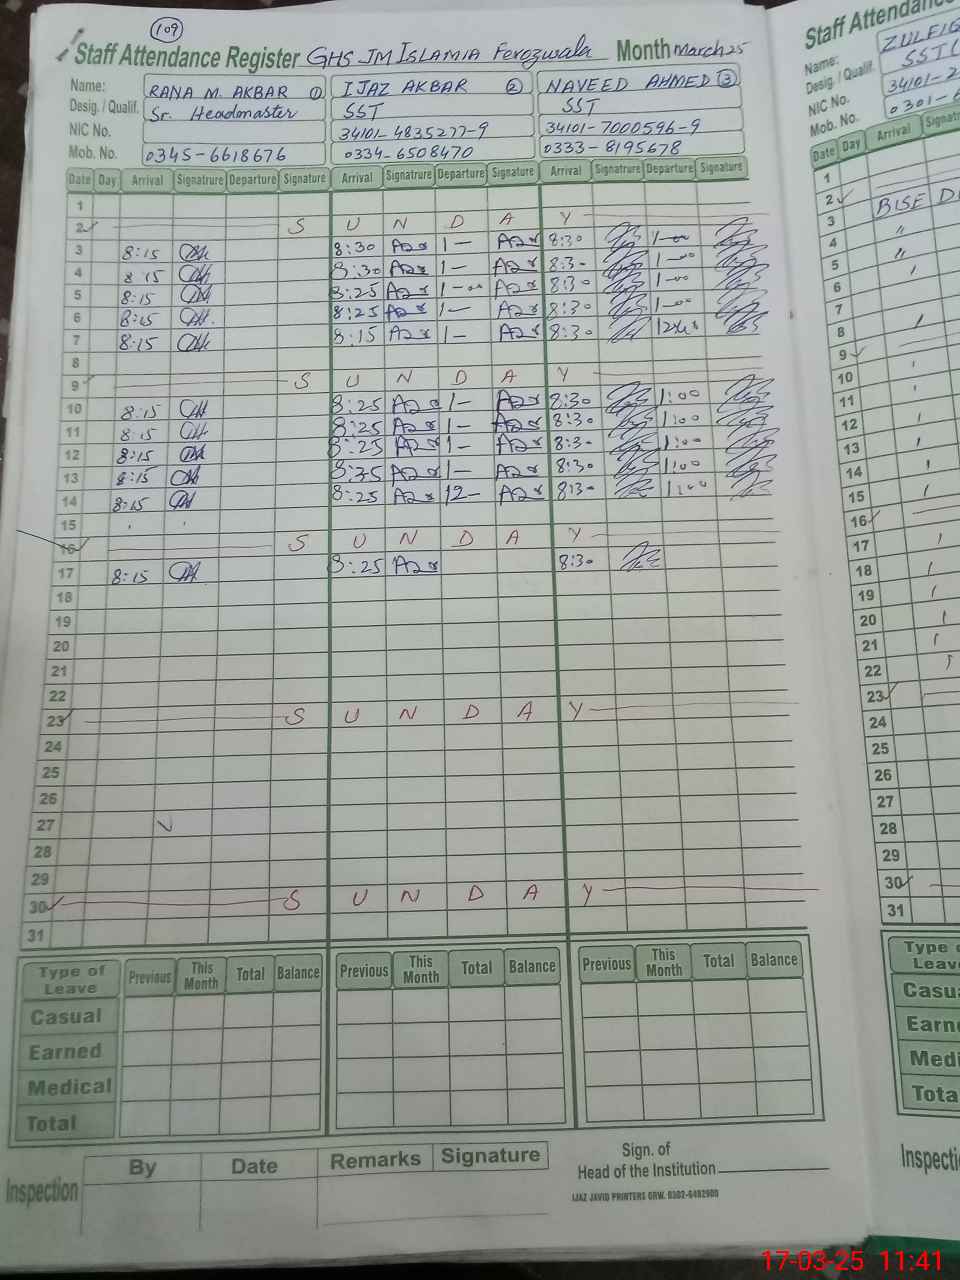 109
Staff Attendance Register GHS JM ISLAMIA Ferozwala Month March 25
Name: RANA M. AKBAR ① IJAZ AKBAR ② NAVEED AHMED ③
Desig. / Qualif. Sr. Headmaster SST SST
NIC No. 34101-4835277-9 34101-7000596-9
Mob. No. 0345-6618676 0334-6508470 0333-8195678
Date Day Arrival Signatrure Departure Signature Arrival Signatrure Departure Signature Arrival Signatrure Departure Signature
1
2 S U N D A Y
3 8:15 8:30 1- 8:30 1-00
4 8:15 8:30 1- 8:30 1-00
5 8:15 8:25 1-00 8:30 1-00
6 8:15 8:25 1- 8:30 1-00
7 8:15 8:15 1- 8:30
8
9 S U N D A Y
10 8:15 8:25 1- 8:30 1:00
11 8:15 8:25 1- 8:30 1:00
12 8:15 8:25 1- 8:30 1:00
13 8:15 8:35 1- 8:30 1:00
14 8:15 8:25 12- 8:30 1:00
15
16 S U N D A Y
17 8:15 8:25 8:30
18
19
20
21
22
23 S U N D A Y
24
25
26
27
28
29
30 S U N D A Y
31
Type of Leave Previous This Month Total Balance Previous This Month Total Balance Previous This Month Total Balance
Casual
Earned
Medical
Total
Inspection By Date Remarks Signature
Sign. of
Head of the Institution
IJAZ JAVID PRINTERS GRW. 0302-6492900
Staff Attendance
Name: ZULFIQ
Desig. / Qualif. SST
NIC No. 34101-2
Mob. No. 0301-6
Date Day Arrival Signatr
1
2
3 BISE D
4 "
5 "
6
7
8
9
10
11
12
13
14
15
16
17
18
19
20
21
22
23
24
25
26
27
28
29
30
31
Type of
Leave
Casu
Earn
Medi
Tota
Inspecti
17-03-25 11:41